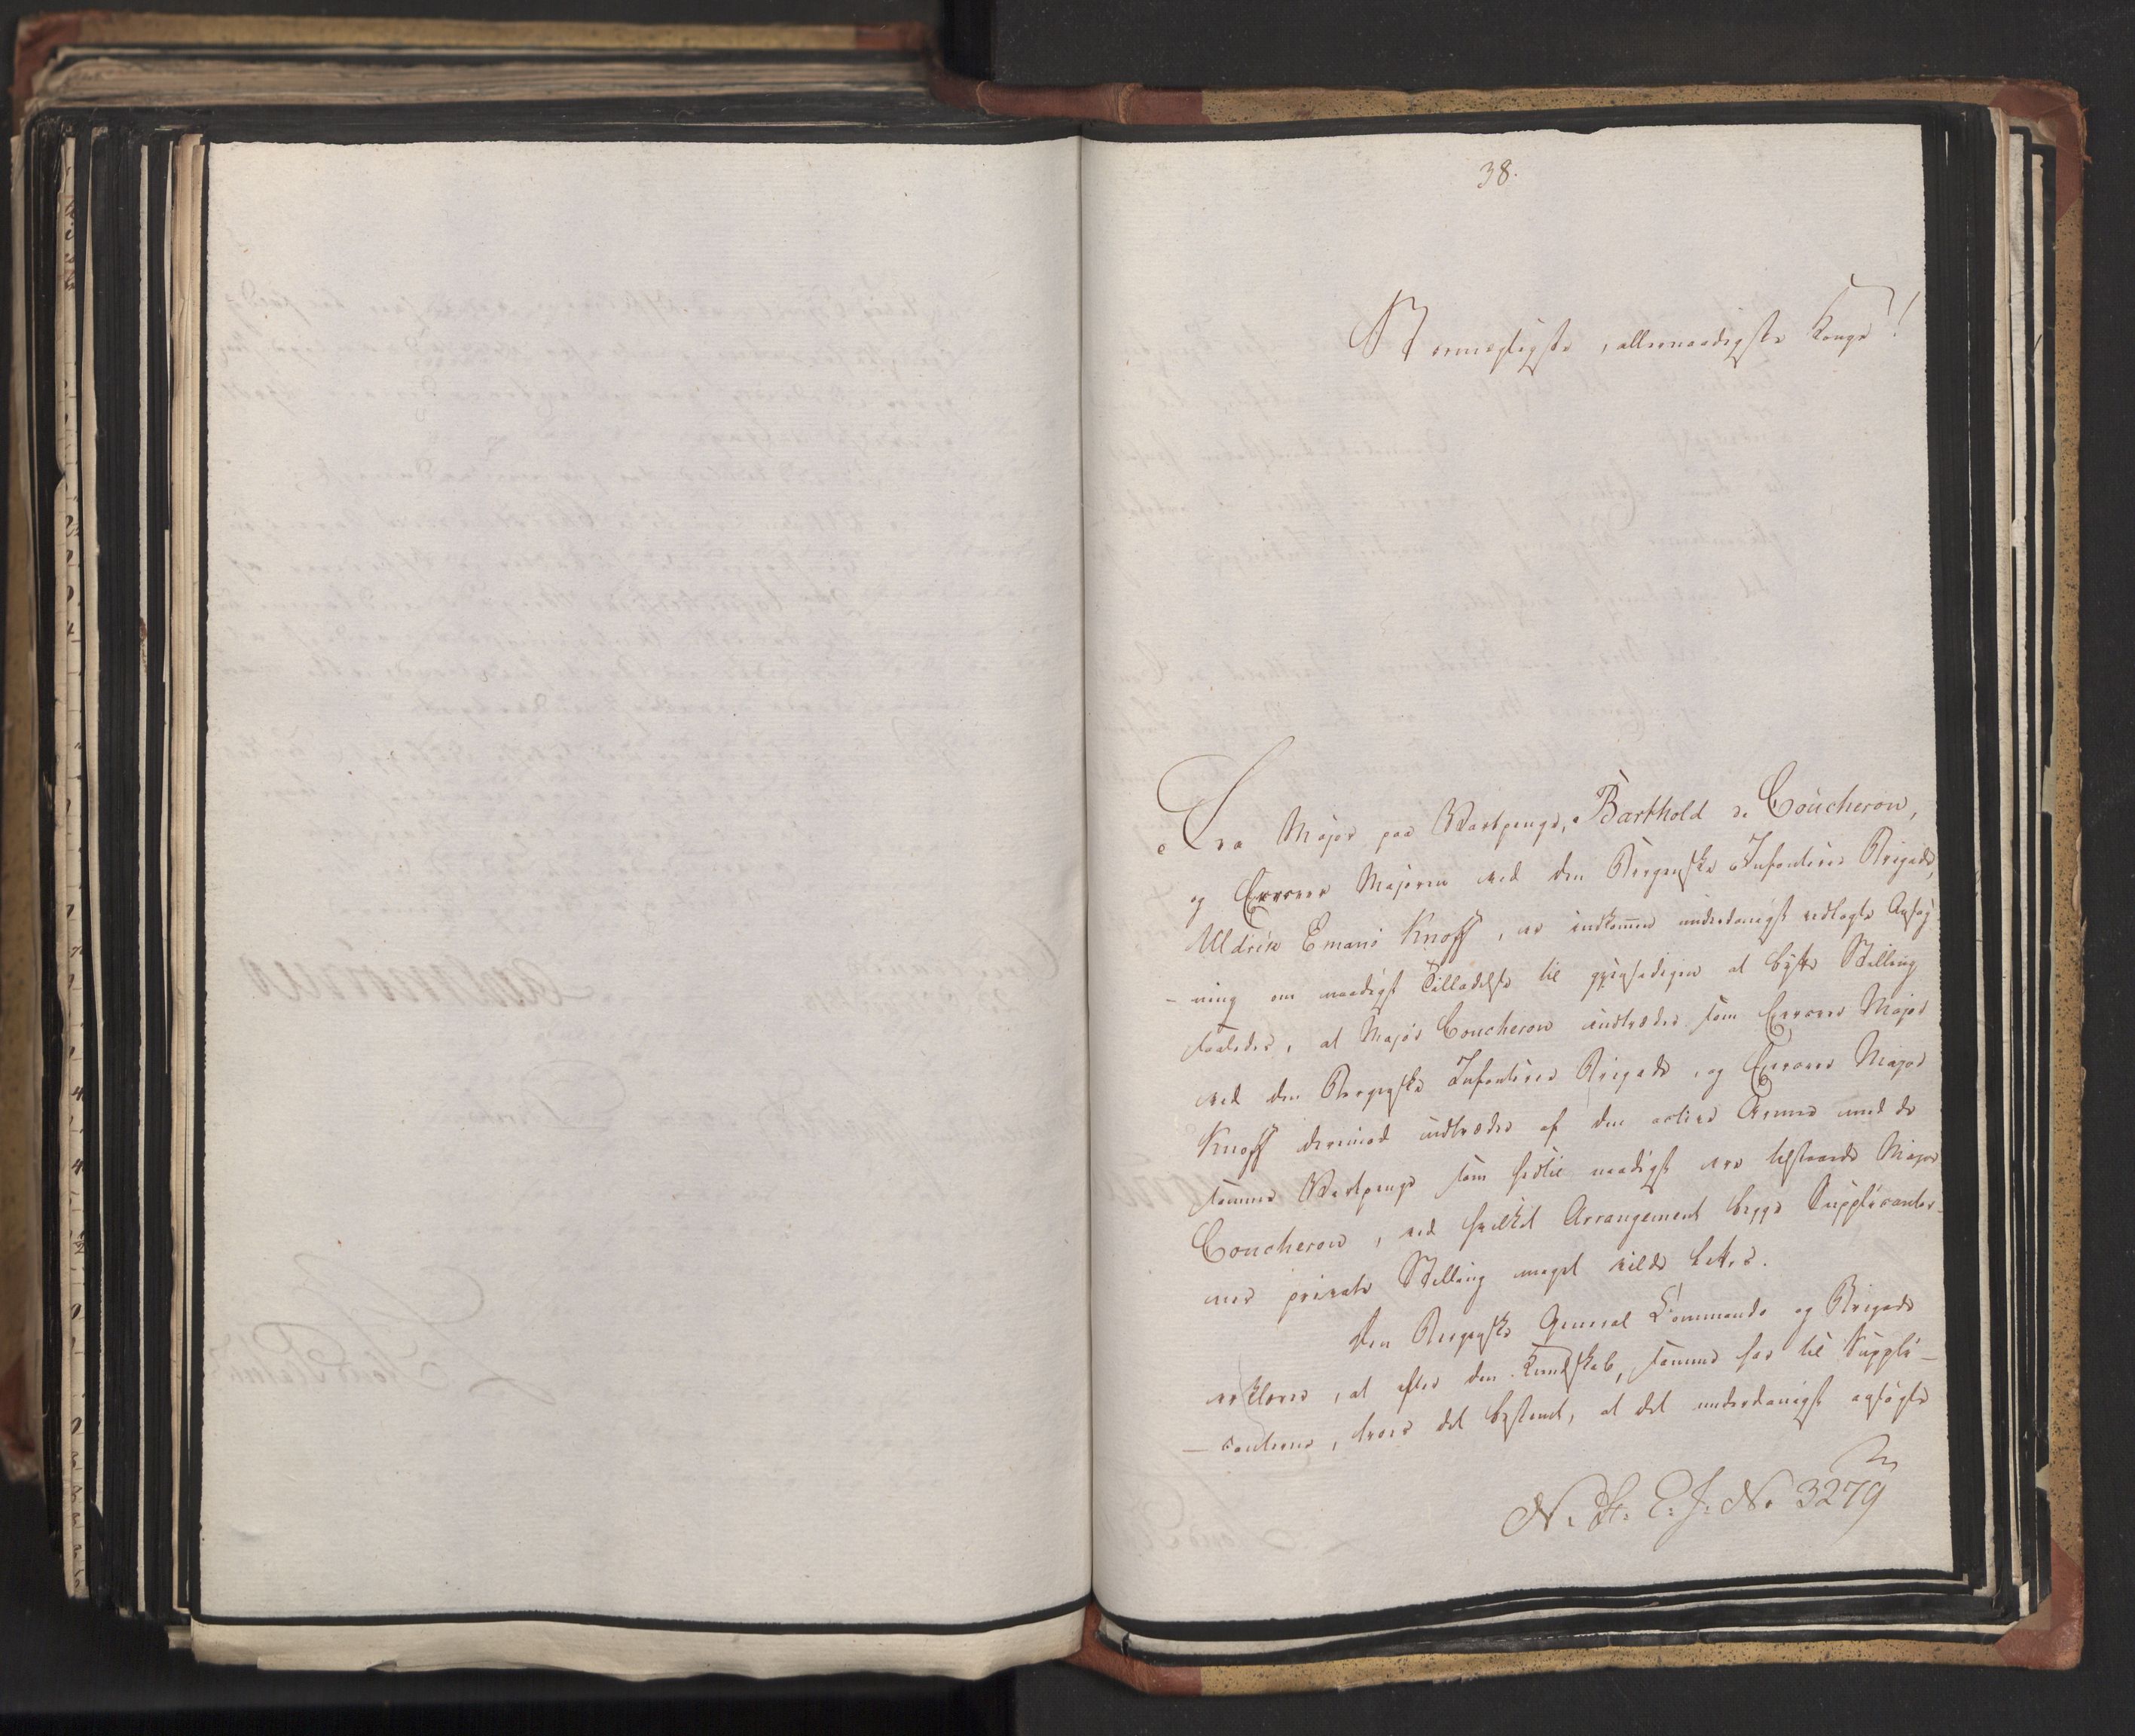 38.
Stormægtigste, allernaadigste Konge!
Fra Major paa Vartpenge, Barthold de Coucheron,
og Exercer Majoren ved den Bergenske Infanterie Brigade,
Uldrich Emanu Knoff, er indkommen underdanigst vedlagte Ansøg-
-ning om naadigst Tilladelse til gjensidigen at bytte Stilling
saaledes, at Major Coucheron indtræder som Exercer Major
ved den Bergenske Infanterie Brigade, og Exercer Major
Knoff derimod udtræder af den active Armee med de
samme Vartpenge som hidtil naadigst ere tilstaaede Major
Coucheron, ved hvilket Arrangement begge Supplicanter-
nes private Stilling meget vilde lettes.
Den Bergenske General Commando og Brigade
erklærer, at efter den Kundskab, samme har til Suppli-
-canterne, troes det bestemt, at det underdanigst ansøgte
N. St. E. J. No 3279